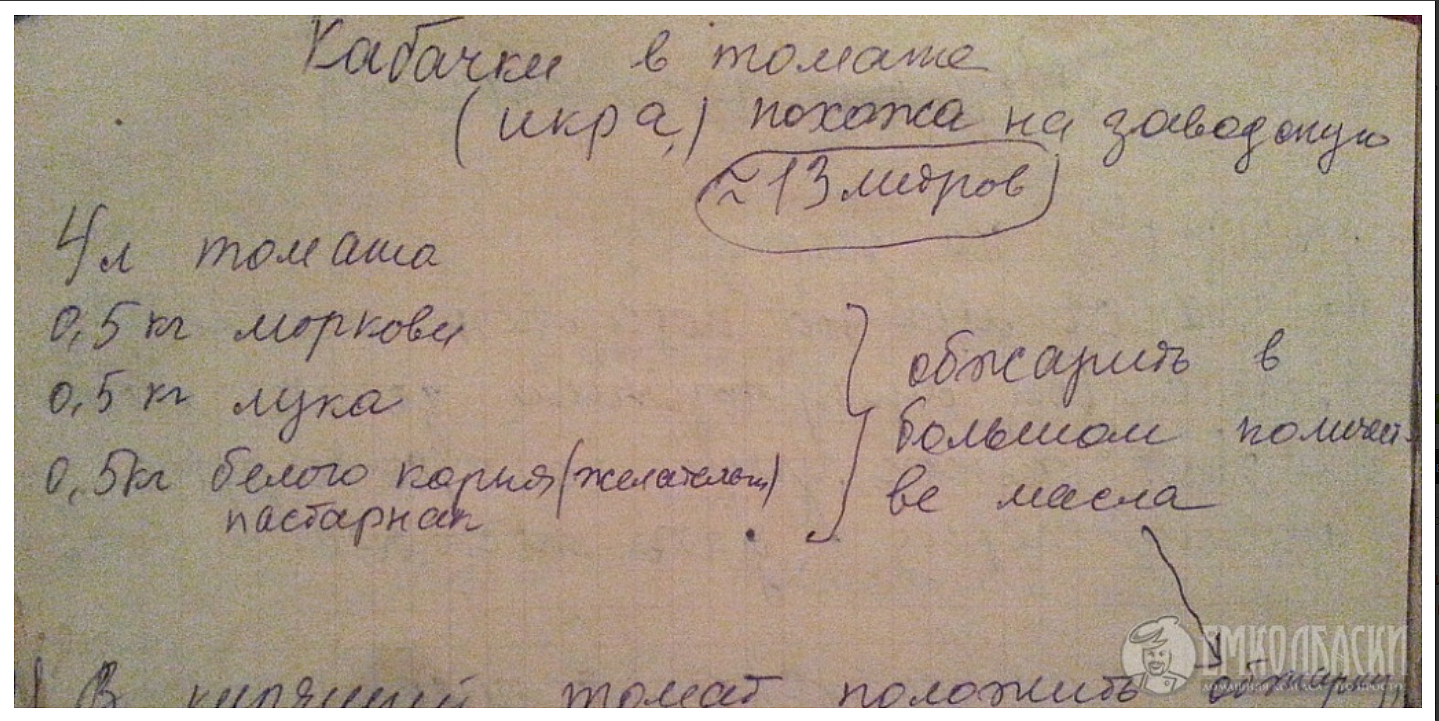 Кабачки в томате
(икра) похожа на заводскую
≈13 литров
4 л томата
0,5 кг моркови
0,5 кг лука
0,5 кг белого корня (желательно)
пастарнак
обжарить в
большом количест
ве масла
В кипящий томат положить обжарку
ЕМКОЛБАСКИ
ДОМАШНЯЯ КОЛБАСА - ЭТО ПРОСТО